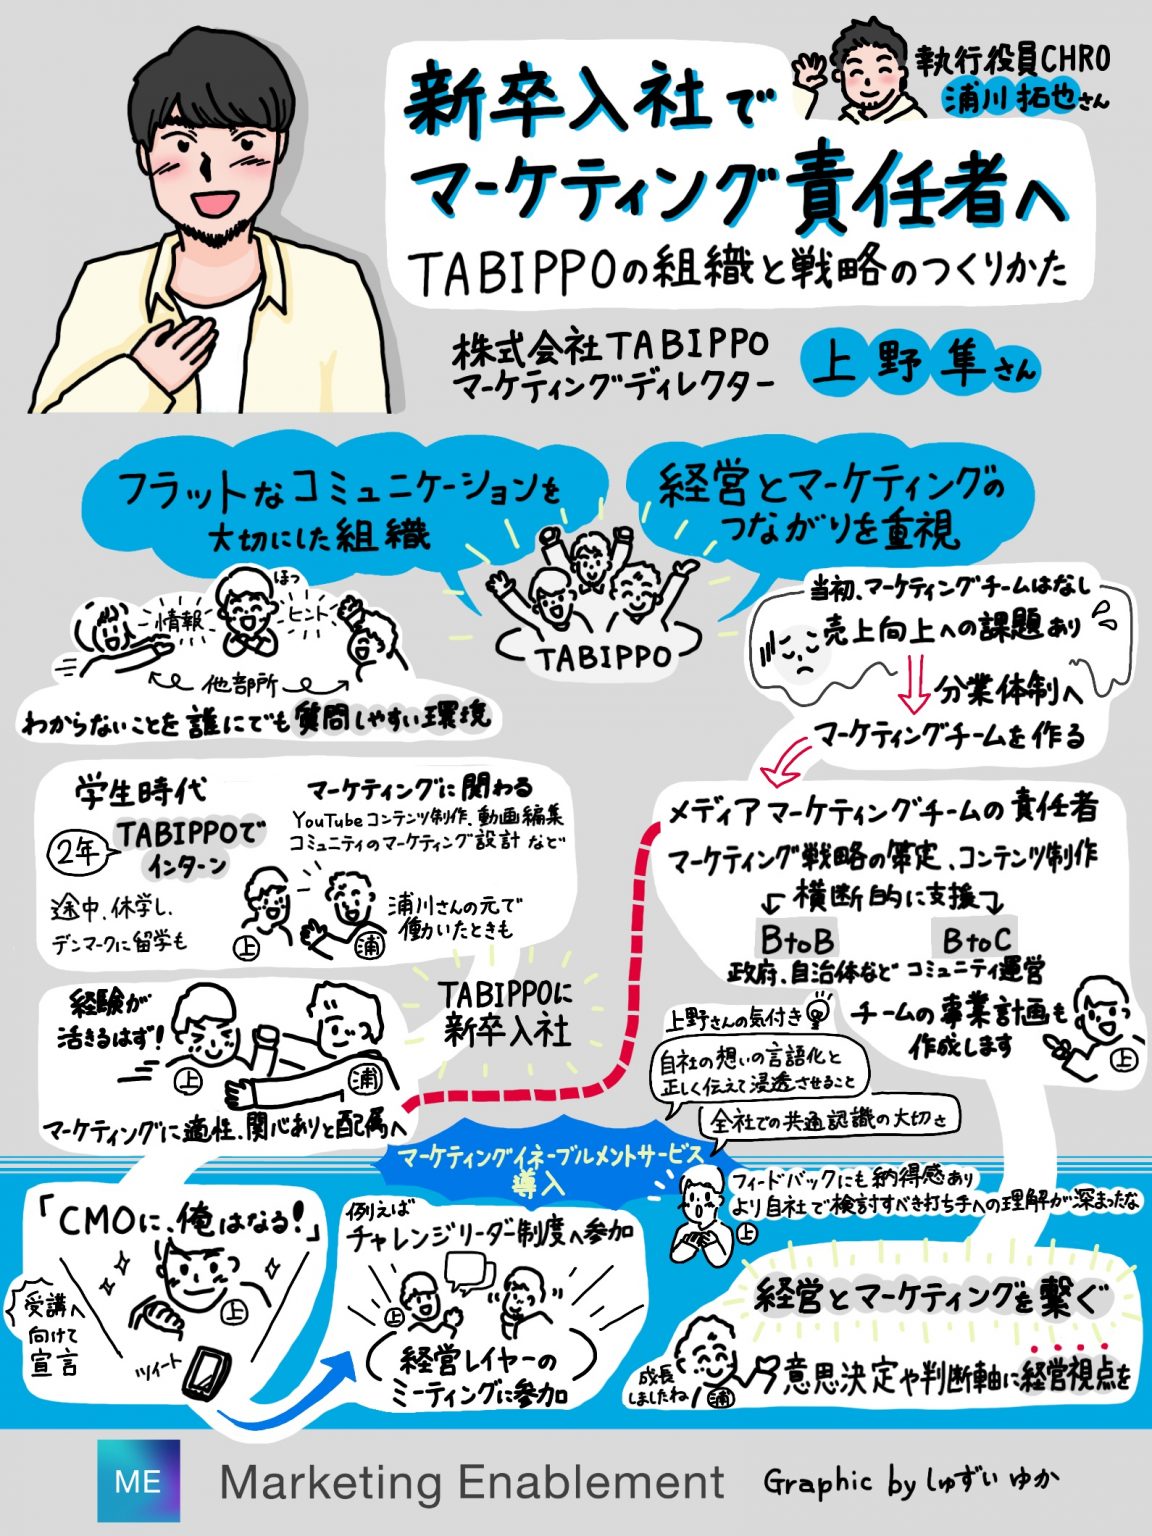 新卒入社で
マーケティング責任者へ
TABIPPOの組織と戦略のつくりかた
執行役員CHRO
浦川拓也さん
株式会社TABIPPO
マーケティングディレクター
上野隼さん
フラットなコミュニケーションを
大切にした組織
経営とマーケティングの
つながりを重視
TABIPPO
情報
ほっ
ヒント
他部所
わからないことを誰にでも質問しやすい環境
当初、マーケティングチームはなし
売上向上への課題あり
分業体制へ
マーケティングチームを作る
学生時代
2年
TABIPPOで
インターン
途中、休学し、
デンマークに留学も
マーケティングに関わる
YouTubeコンテンツ制作、動画編集
コミュニティのマーケティング設計など
上
浦
浦川さんの元で
働いたときも
経験が
活きるはず!
上
浦
マーケティングに適性、関心ありと配属へ
TABIPPOに
新卒入社
メディアマーケティングチームの責任者
マーケティング戦略の策定、コンテンツ制作
横断的に支援
BtoB
政府、自治体など
BtoC
コミュニティ運営
チームの事業計画も
作成します
上
上野さんの気付き
自社の想いの言語化と
正しく伝えて浸透させること
全社での共通認識の大切さ
マーケティングイネーブルメントサービス
導入
「CMOに、俺はなる!」
上
受講へ
向けて
宣言
ツイート
例えば
チャレンジリーダー制度へ参加
上
経営レイヤーの
ミーティングに参加
フィードバックにも納得感あり
より自社で検討すべき打ち手への理解が深まったな
上
経営とマーケティングを繋ぐ
意思決定や判断軸に経営視点を
成長
しましたね
浦
ME
Marketing Enablement
Graphic by しゅずい ゆか